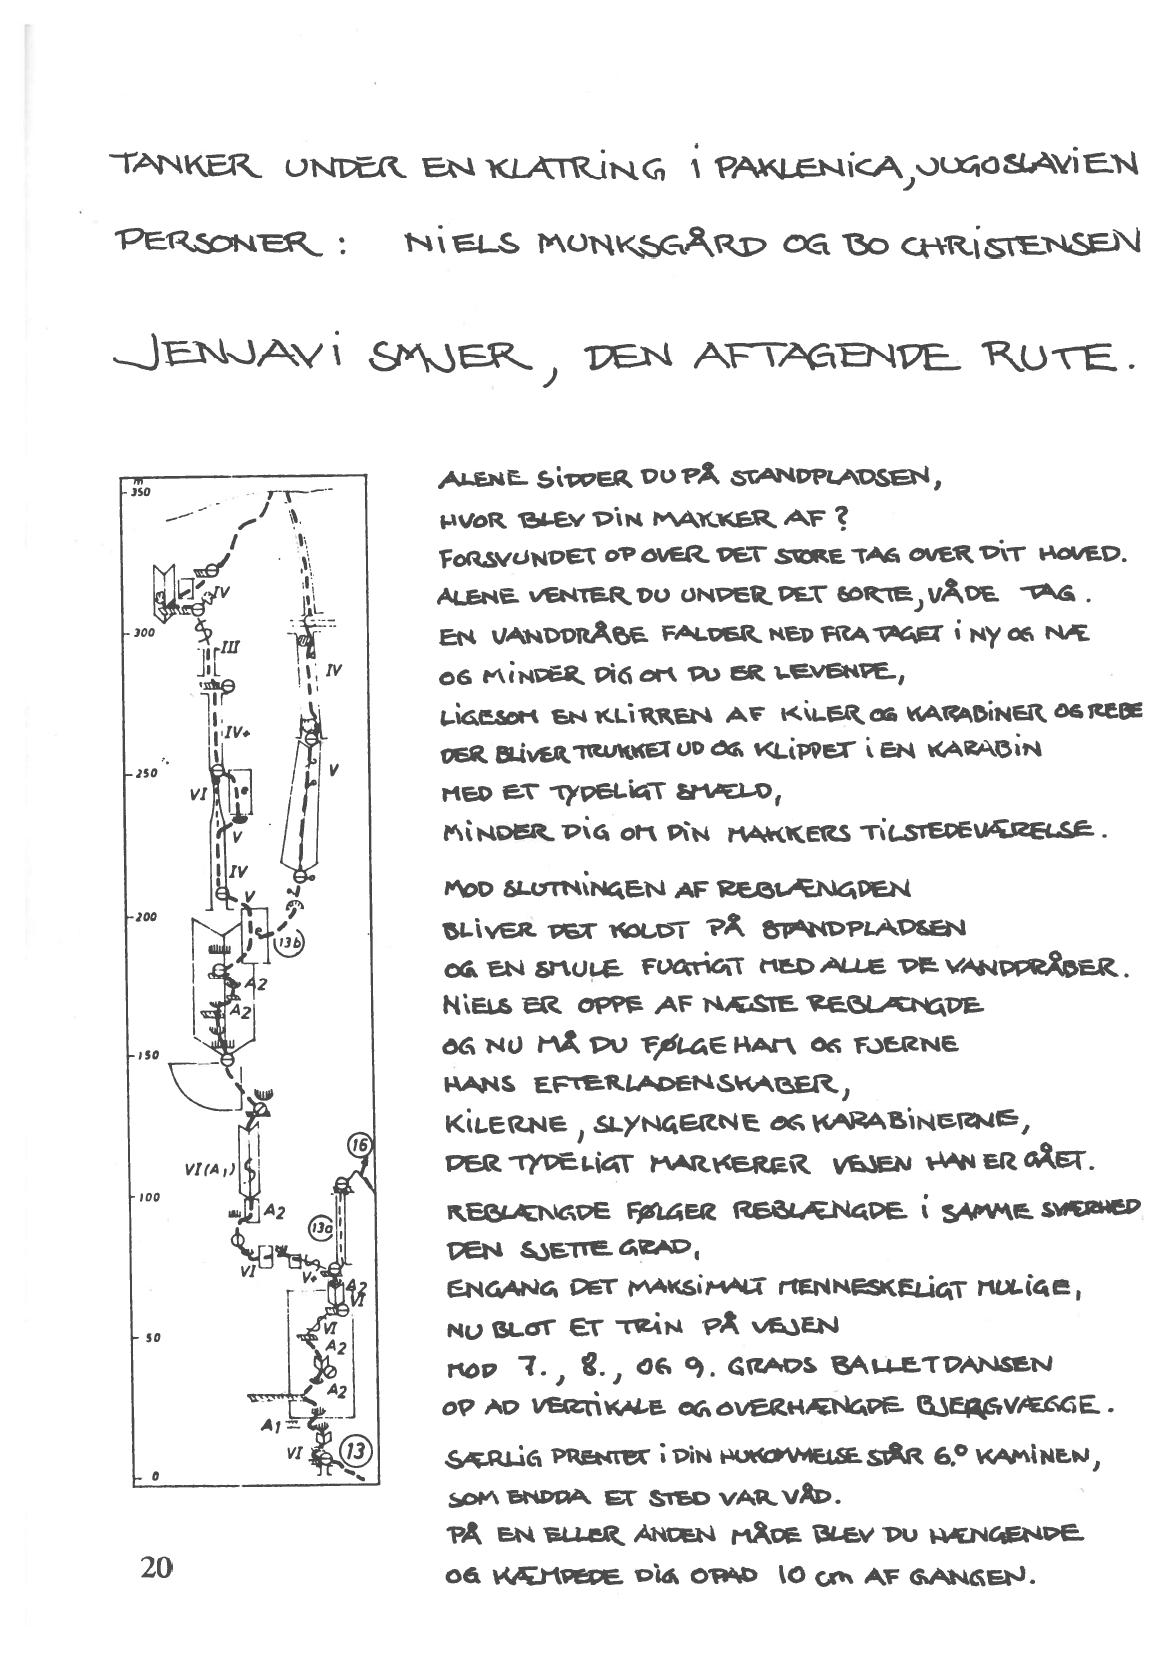 TANKER UNDER EN KLATRING I PAKLENICA, JUGOSLAVIEN
PERSONER: NIELS MUNKSGÅRD OG BO CHRISTENSEN
JENJAVI SMJER, DEN AFTAGENDE RUTE.
ALENE SIDDER DU PÅ STANDPLADSEN,
HVOR BLEV DIN MAKKER AF?
FORSVUNDET OP OVER DET STORE TAG OVER DIT HOVED.
ALENE VENTER DU UNDER DET SORTE, VÅDE TAG.
EN VANDDRÅBE FALDER NED FRA TAGET I NY OG NÆ
OG MINDER DIG OM DU ER LEVENDE,
LIGESOM EN KLIRREN AF KILER OG KARABINER OG REBE
DER BLIVER TRUKKET UD OG KLIPPET I EN KARABIN
MED ET TYDELIGT SMÆLD,
MINDER DIG OM DIN MAKKERS TILSTEDEVÆRELSE.
MOD SLUTNINGEN AF REBLÆNGDEN
BLIVER DET KOLDT PÅ STANDPLADSEN
OG EN SMULE FUGTIGT MED ALLE DE VANDDRÅBER.
NIELS ER OPPE AF NÆSTE REBLÆNGDE
OG NU MÅ DU FØLGE HAM OG FJERNE
HANS EFTERLADENSKABER,
KILERNE, SLYNGERNE OG KARABINERNE,
DER TYDELIGT MARKERER VEJEN HAN ER GÅET.
REBLÆNGDE FØLGER REBLÆNGDE I SAMME SVÆRHED
DEN SJETTE GRAD,
ENGANG DET MAKSIMALT MENNESKELIGT MULIGE,
NU BLOT ET TRIN PÅ VEJEN
MOD 7., 8., OG 9. GRADS BALLETDANSEN
OP AD VERTIKALE OG OVERHÆNGDE BJERGVÆGGE.
SÆRLIG PRENTET I DIN HUKOMMELSE STÅR 6.° KAMINEN,
SOM ENDDA ET STED VAR VÅD.
PÅ EN ELLER ANDEN MÅDE BLEV DU HÆNGENDE
OG KÆMPEDE DIG OPAD 10 cm AF GANGEN.
m
350
IV
300
III
IV
IV+
V
250
VI
V
IV
V
200
13b
A2
A2
150
16
VI (A1)
100
A2
13a
VI
V+
A2
VI
VI
50
A2
A2
A1
VI
13
0
20